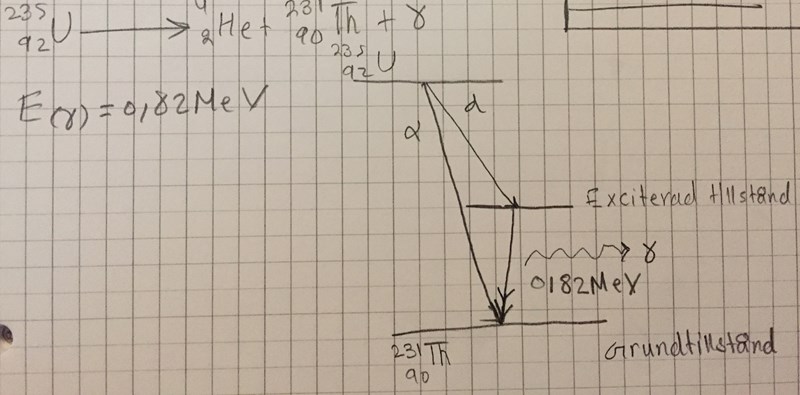 ²³⁵₉₂U → ⁴₂He + ²³¹₉₀Th + γ
²³⁵₉₂U
E(γ) = 0,82 MeV
α
α
Exciterad tillstånd
γ
0,82 MeV
²³¹₉₀Th
Grundtillstånd